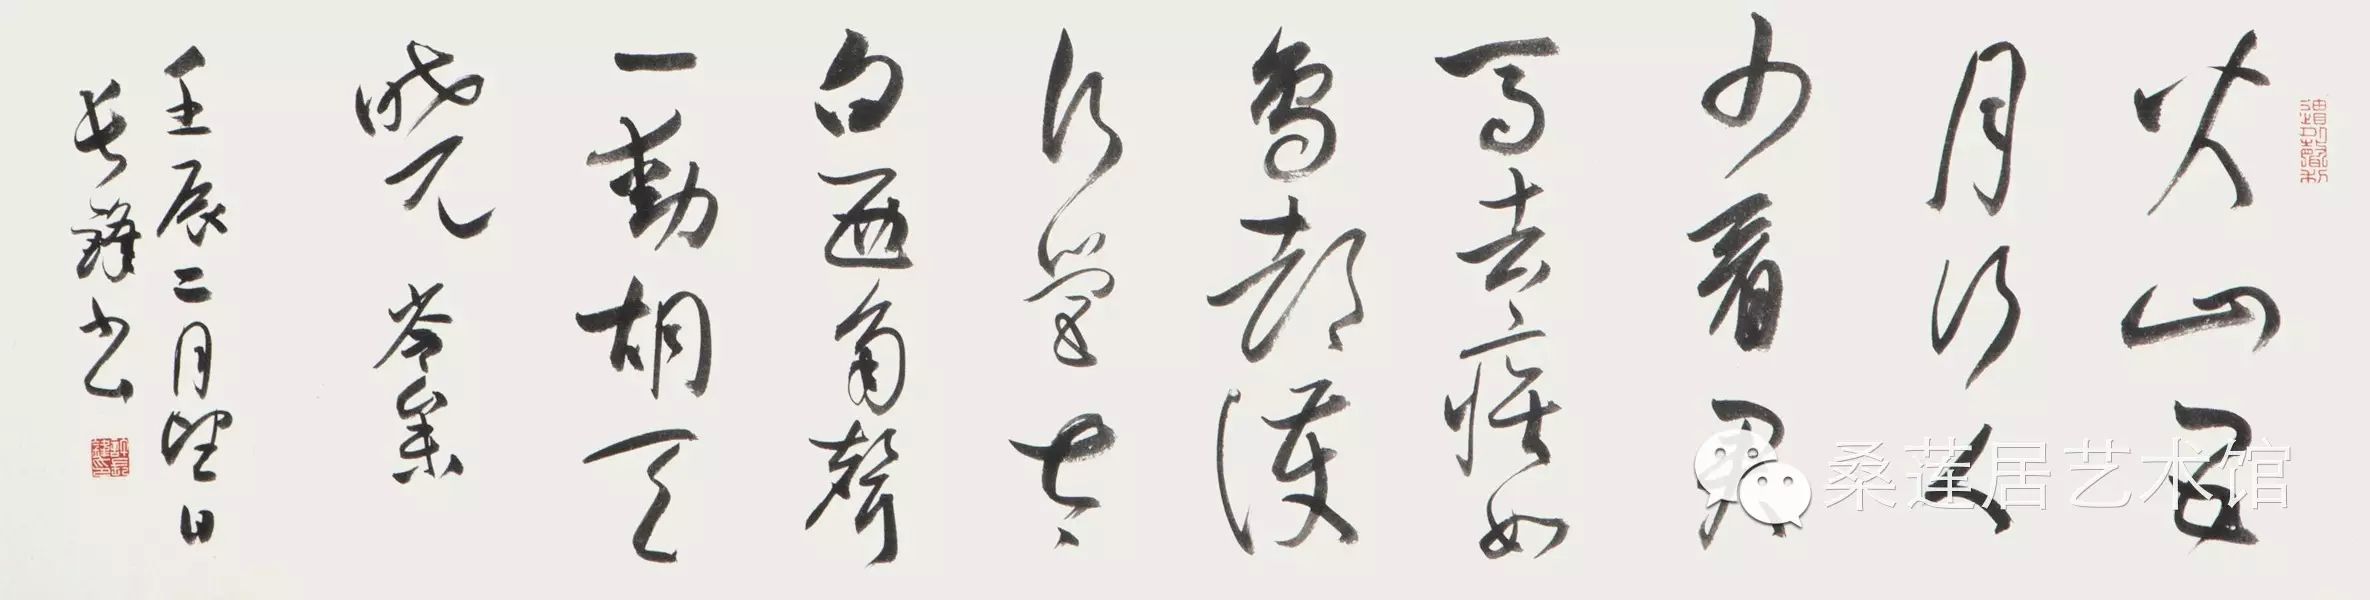 火山五
月行人
少看君
馬去疾如
鳥都護
行營太
白西角聲
一動胡天
曉 岑參
壬辰二月望日
長鋒书
桑莲居艺术馆